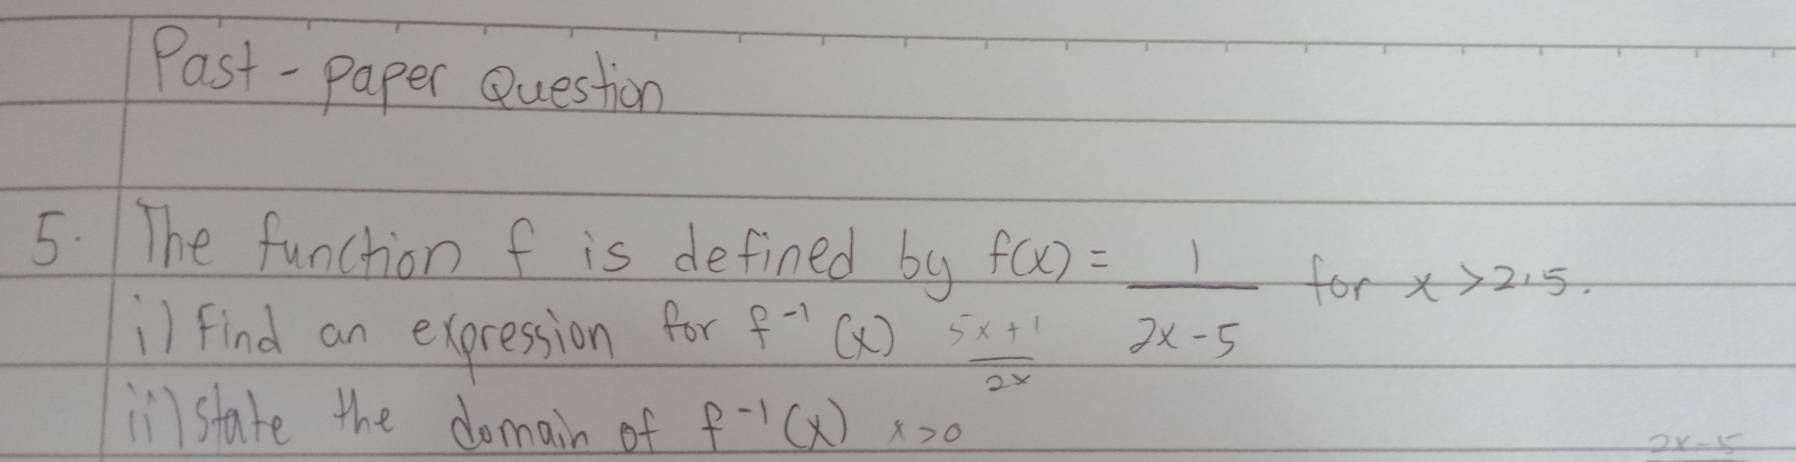 Past - paper Question
5. The function f is defined by f(x) = 1/(2x - 5) for x > 2.5.
i) Find an expression for f⁻¹ (x) (5x + 1)/2x
ii) State the domain of f⁻¹ (x) x > 0
2x - 5